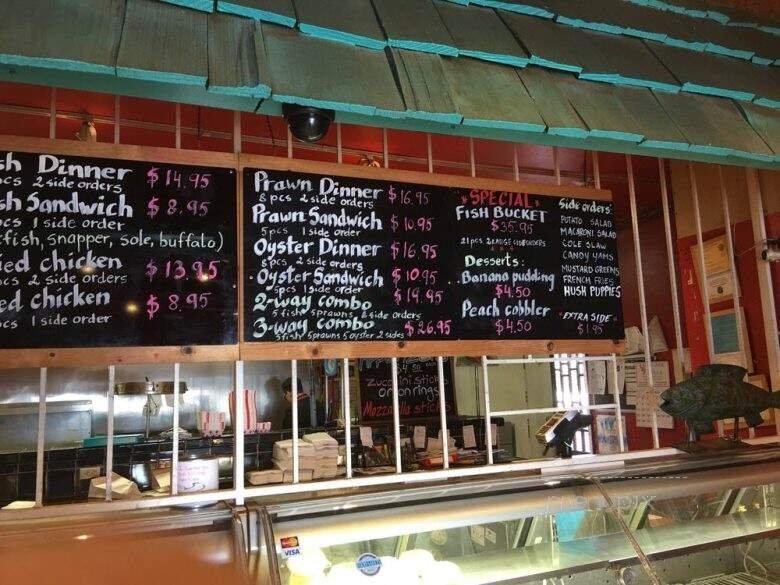 sh Dinner $14.95
pcs 2 side orders
sh Sandwich $8.95
pcs 1 side order
tfish, snapper, sole, buffalo)
ied chicken $13.95
cs 2 side orders
ed chicken $8.95
pcs 1 side order
Prawn Dinner $16.95
8 pcs 2 side orders
Prawn Sandwich $10.95
5pcs 1 side order
Oyster Dinner $16.95
8 pcs 2 side orders
Oyster Sandwich $10.95
5pcs 1 side order
2-way combo $19.95
5 fish 5 prawns 2 side orders
3-way combo $26.95
5 fish 5 prawns 5 oyster 2 sides
*SPECIAL*
FISH BUCKET
$35.95
21pcs 2 LARGE SIDE ORDERS
Desserts:
Banana pudding
$4.50
Peach cobbler
$4.50
Side orders:
POTATO SALAD
MACARONI SALAD
COLE SLAW
CANDY YAMS
MUSTARD GREENS
FRENCH FRIES
HUSH PUPPIES
EXTRA SIDE
$1.95
Zucchini sticks
onion rings
Mozzarella sticks
VISA